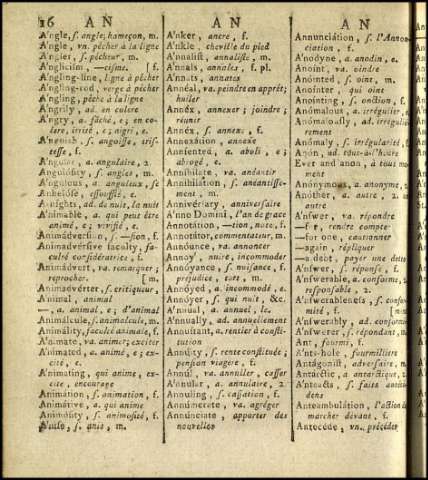 16 AN AN AN
A'ngle, s. angle, hameçon, m.
A'ngle, vn. pêcher à la ligne
A'ngler, s. pêcheur, m.
A'nglicism, —cisme.
A'ngling-line, ligne à pêcher
A'ngling-rod, verge à pêcher
A'ngling, pêche à la ligne
A'ngrily, ad. en colere
A'ngry, a. fâché, e; en co-
lere, irrité, e; aigri, e.
A'nguish, s. angoisse, tris-
tesse, f.
A'ngular, a. angulaire, 2
Angulósity, s. angles, m.
A'ngulous, a. anguleux, se
Anhelóse, essoufflé, e.
A-nights, ad. de nuit, la nuit
A'nimable, a. qui peut être
animé, e; vivifié, e.
Animadvérsion, s. —sion, f.
Animadvérsive faculty, fa-
culté considérative, f.
Animadvért, va. remarquer;
reprocher. [m.
Animadvérter, s. critiqueur,
A'nimal, animal
—, a. animal, e; d'animal
Animálcule, s. animalcule, m.
Animálity, faculté animale, f.
A'nimate, va. animer; exciter
A'nimated, a. animé, e; ex-
cité, e.
A'nimating, qui anime, ex-
cite, encourage
Animátion, s. animation, f.
A'nimátive, a. qui anime
Animósity, s. animosité, f.
A'nise, s. anis, m.
A'nker, ancre, f.
A'nkle, cheville du pied
A'nnalist, annaliste, m.
A'nnals, annales, f. pl.
A'nnats, annates
Annéal, va. peindre en apprêt;
huiler
Annéx, annexer; joindre;
réunir
Annéx, s. annexe, f.
Annexátion, annexe
Annihilate, va. anéantir
Annihilátion, s. anéantisse-
ment, m.
Annivérsary, anniversaire
A'nno Dómini, l'an de grace
Annotátion, —tion, note, f.
Annotátor, commentateur, m.
Annóunce, va. annoncer
Annoy, nuire, incommoder
Annóyance, s. nuisance, f.
préjudice, tort, m.
Annóyed, a. incommodé, e.
Annóyer, s. qui nuit, &c.
A'nnual, a. annuel, le.
A'nnually, ad. annuellement
Annúitant, a. rentier à consti-
tution
Annúity, s. rente constituée;
pension viagere, f.
Annúl, va. annuller, casser
A'nnular, a. annulaire, 2
Annúling, s. cassation, f.
Annúmerate, va. agréger
Annúnciate, apporter des
nouvelles
Annunciátion, s. l'Annon-
ciation, f.
A'nodyne, a. anodin, e.
Anóint, va. oindre
Anóinted, a. oint, m.
Anóinter, qui oint
Anóinting, s. onction, f.
Anómalous, a. irrégulier
Anómalously, ad. irréguliere-
rement
Anómaly, s. irrégularité, f.
Anón, ad. tout-à-l'heure
Ever and anon, à tous mo-
ment
Anónymous, a. anonyme, 2
Anóther, a. autre, 2 un
autre
A'nswer, va. répondre
—for, rendre compte
—for one, cautionner
—again, répliquer
—a debt, payer une dette
A'nswer, s. réponse, f.
A'nswerable, a. conforme, 2
responsable, 2
A'nswerableness, s. confor-
mité, f.
A'nswerably, ad. conformé-
A'nswerer, s. répondant, m.
Ant, fourmi, f.
A'nts-hole, fourmilliere
Antágonist, adversaire, m.
Antárctic, a. antarctique, 2
Anteambulátion, l'action de
marcher devant, f.
Antecéde, vn. précéder